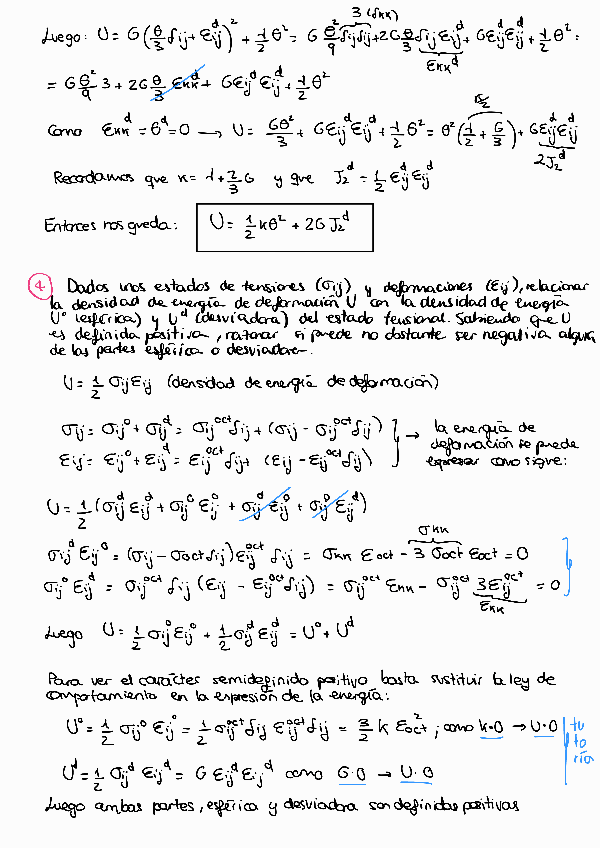 3 (δkk)
Luego: U = G (θ/3 δij + εij^d)² + 1/2 θ² = G θ²/9 δijδij + 2G θ/3 δij εij^d + G εij^d εij^d + 1/2 θ² =
εkk^d
= G θ²/9 3 + 2G θ/3 εkk^d + G εij^d εij^d + 1/2 θ²
k/2
Como εkk^d = θ^d = 0 → U = Gθ²/3 + G εij^d εij^d + 1/2 θ² = θ² (λ/2 + G/3) + G εij^d εij^d
2J2^d
Recordamos que k = λ + 2/3 G y que J2^d = 1/2 εij^d εij^d
Entonces nos queda: U = 1/2 kθ² + 2G J2^d
4 Dados unos estados de tensiones (σij) y deformaciones (εij), relacionar
la densidad de energía de deformación U con la densidad de energía
U° (esférica) y U^d (desviadora) del estado tensional. Sabiendo que U
es definida positiva, razonar si puede no obstante ser negativa alguna
de las partes esférica o desviadora.
U = 1/2 σij εij (densidad de energía de deformación)
σij = σij° + σij^d = σij^oct δij + (σij - σij^oct δij)
εij = εij° + εij^d = εij^oct δij + (εij - εij^oct δij)
→ la energía de
deformación se puede
expresar como sigue:
U = 1/2 (σij^d εij^d + σij° εij° + σij^d εij° + σij° εij^d)
σkk
σij^d εij° = (σij - σoct δij) εij^oct δij = σkk εoct - 3 σoct εoct = 0
σij° εij^d = σij^oct δij (εij - εij^oct δij) = σij^oct εkk - σij^oct 3εij^oct = 0
εkk
Luego U = 1/2 σij° εij° + 1/2 σij^d εij^d = U° + U^d
Para ver el carácter semidefinido positivo basta sustituir la ley de
comportamiento en la expresión de la energía:
U° = 1/2 σij° εij° = 1/2 σij^oct δij εij^oct δij = 3/2 k εoct² ; como k·0 → U·0
tu
to
ría
U^d = 1/2 σij^d εij^d = G εij^d εij^d como G·0 → U·0
Luego ambas partes, esférica y desviadora son definidas positivas